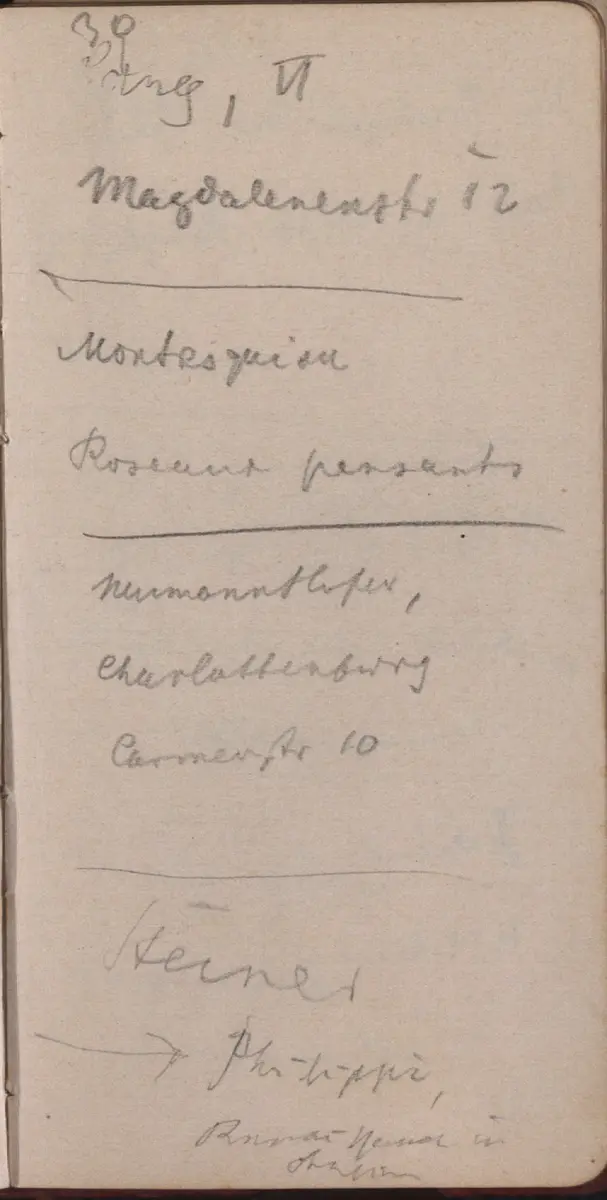 39
VI
Magdalenenstr 12
Montesquieu
Roseaux pensants
Neumannthofer,
Charlottenburg
Carmerstr 10
Steiner
Philippi,
in